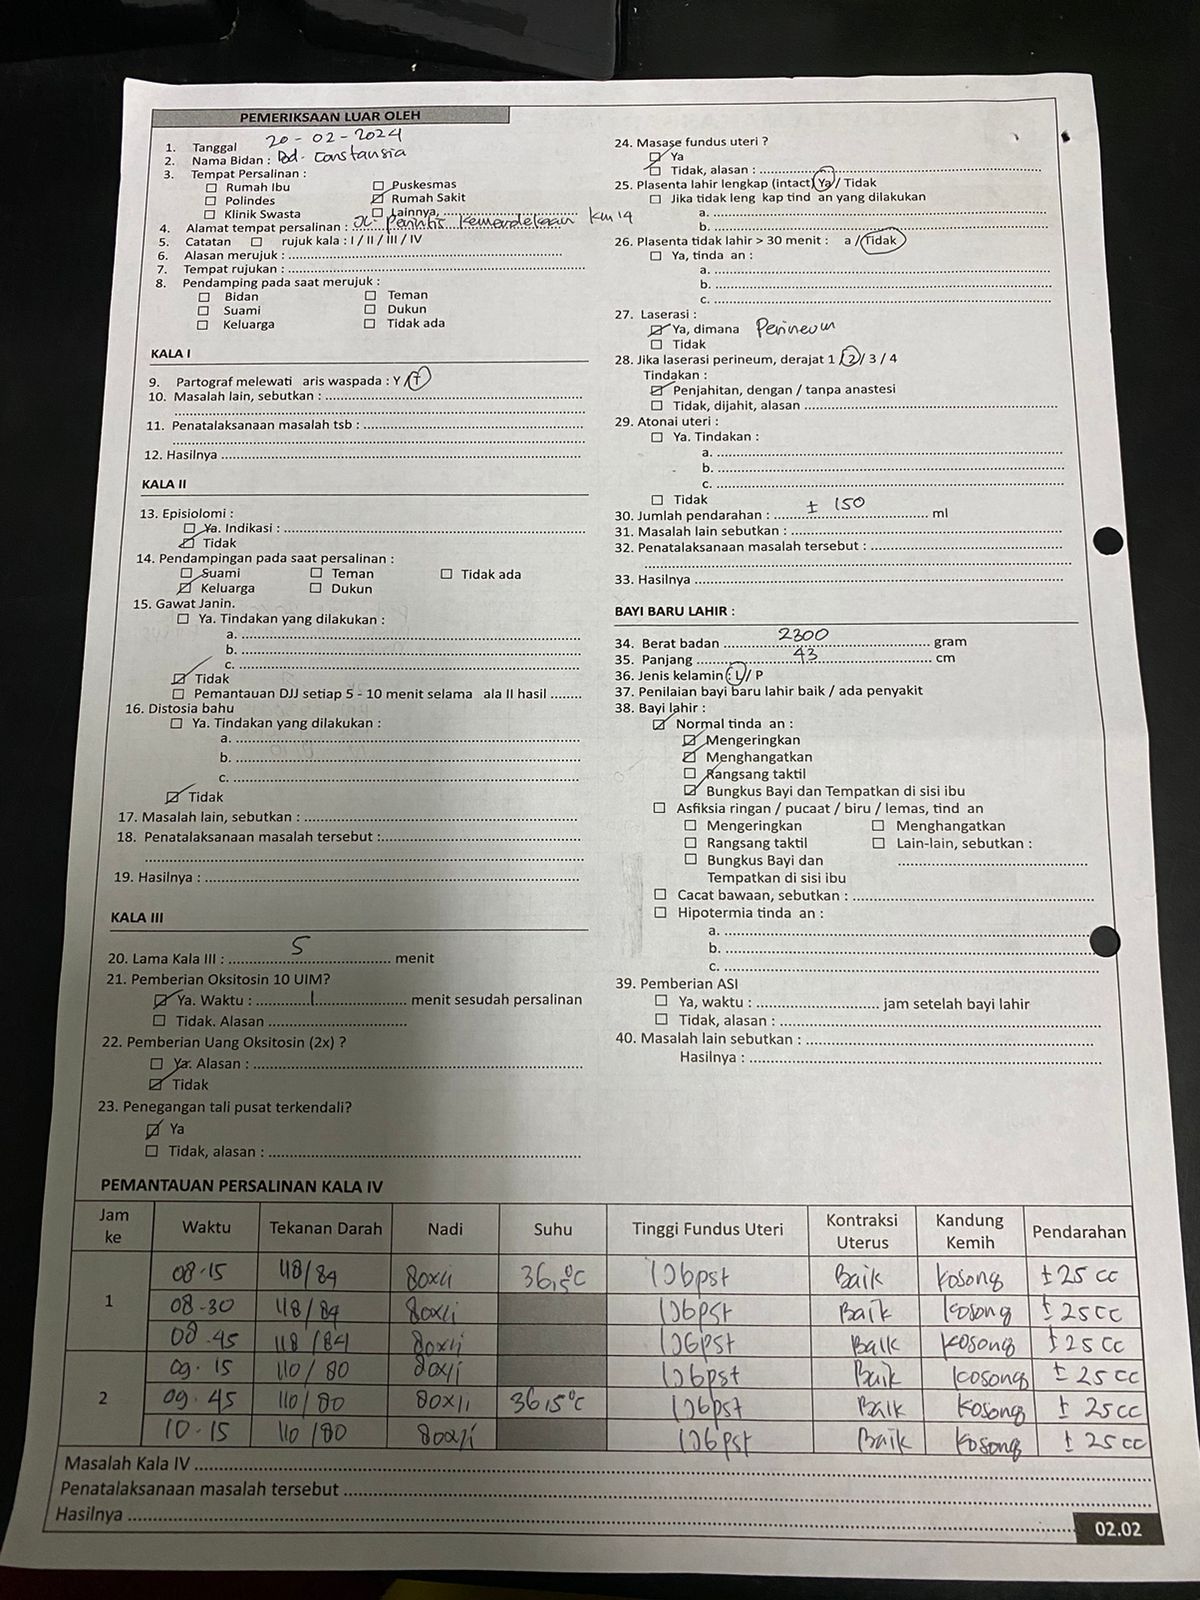 PEMERIKSAAN LUAR OLEH
1. Tanggal 20-02-2024
2. Nama Bidan : Bd. Constansia
3. Tempat Persalinan :
☐ Rumah Ibu ☐ Puskesmas
☐ Polindes ☑ Rumah Sakit
☐ Klinik Swasta ☐ Lainnya, ..........
4. Alamat tempat persalinan : JL. Perintis Kemerdekaan km 14
5. Catatan ☐ rujuk kala : I / II / III / IV
6. Alasan merujuk : ..........
7. Tempat rujukan : ..........
8. Pendamping pada saat merujuk :
☐ Bidan ☐ Teman
☐ Suami ☐ Dukun
☐ Keluarga ☐ Tidak ada
KALA I
9. Partograf melewati aris waspada : Y / T
10. Masalah lain, sebutkan : ..........
..........
11. Penatalaksanaan masalah tsb : ..........
..........
12. Hasilnya ..........
KALA II
13. Episiolomi :
☐ Ya. Indikasi : ..........
☑ Tidak
14. Pendampingan pada saat persalinan :
☐ Suami ☐ Teman ☐ Tidak ada
☑ Keluarga ☐ Dukun
15. Gawat Janin.
☐ Ya. Tindakan yang dilakukan :
a. ..........
b. ..........
c. ..........
☑ Tidak
☐ Pemantauan DJJ setiap 5 - 10 menit selama ala II hasil ........
16. Distosia bahu
☐ Ya. Tindakan yang dilakukan :
a. ..........
b. ..........
c. ..........
☑ Tidak
17. Masalah lain, sebutkan : ..........
18. Penatalaksanaan masalah tersebut :..........
..........
19. Hasilnya : ..........
KALA III
20. Lama Kala III : 5 menit
21. Pemberian Oksitosin 10 UIM?
☑ Ya. Waktu : 1 menit sesudah persalinan
☐ Tidak. Alasan ..........
22. Pemberian Uang Oksitosin (2x) ?
☐ Ya. Alasan : ..........
☑ Tidak
23. Penegangan tali pusat terkendali?
☑ Ya
☐ Tidak, alasan : ..........
24. Masase fundus uteri ?
☑ Ya
☐ Tidak, alasan : ..........
25. Plasenta lahir lengkap (intact) Ya / Tidak
☐ Jika tidak leng kap tind an yang dilakukan
a. ..........
b. ..........
26. Plasenta tidak lahir > 30 menit : a / Tidak
☐ Ya, tinda an :
a. ..........
b. ..........
c. ..........
27. Laserasi :
☑ Ya, dimana Perineum
☐ Tidak
28. Jika laserasi perineum, derajat 1 / 2 / 3 / 4
Tindakan :
☑ Penjahitan, dengan / tanpa anastesi
☐ Tidak, dijahit, alasan ..........
29. Atonai uteri :
☐ Ya. Tindakan :
a. ..........
b. ..........
c. ..........
☐ Tidak
30. Jumlah pendarahan : ± 150 ml
31. Masalah lain sebutkan : ..........
32. Penatalaksanaan masalah tersebut : ..........
..........
33. Hasilnya ..........
BAYI BARU LAHIR :
34. Berat badan 2300 gram
35. Panjang 43 cm
36. Jenis kelamin : L / P
37. Penilaian bayi baru lahir baik / ada penyakit
38. Bayi lahir :
☑ Normal tinda an :
☑ Mengeringkan
☑ Menghangatkan
☐ Rangsang taktil
☑ Bungkus Bayi dan Tempatkan di sisi ibu
☐ Asfiksia ringan / pucaat / biru / lemas, tind an
☐ Mengeringkan ☐ Menghangatkan
☐ Rangsang taktil ☐ Lain-lain, sebutkan :
☐ Bungkus Bayi dan ..........
Tempatkan di sisi ibu
☐ Cacat bawaan, sebutkan : ..........
☐ Hipotermia tinda an :
a. ..........
b. ..........
c. ..........
39. Pemberian ASI
☐ Ya, waktu : .......... jam setelah bayi lahir
☐ Tidak, alasan : ..........
40. Masalah lain sebutkan : ..........
Hasilnya : ..........
PEMANTAUAN PERSALINAN KALA IV
Jam ke Waktu Tekanan Darah Nadi Suhu Tinggi Fundus Uteri Kontraksi Uterus Kandung Kemih Pendarahan
1 08.15 118/84 80x/i 36,5°C 1Jbpst Baik Kosong ± 25 cc
08-30 118/84 80x/i 1Jbpst Baik Kosong ± 25 cc
08.45 118/84 80x/i 1Jbpst Baik Kosong ± 25 cc
2 09.15 110/80 80x/i 1Jbpst Baik Kosong ± 25 cc
09.45 110/80 80x/i 36,5°C 1Jbpst Baik Kosong ± 25 cc
10.15 110/80 80x/i 1Jbpst Baik Kosong ± 25 cc
Masalah Kala IV ..........
Penatalaksanaan masalah tersebut ..........
Hasilnya ..........
02.02